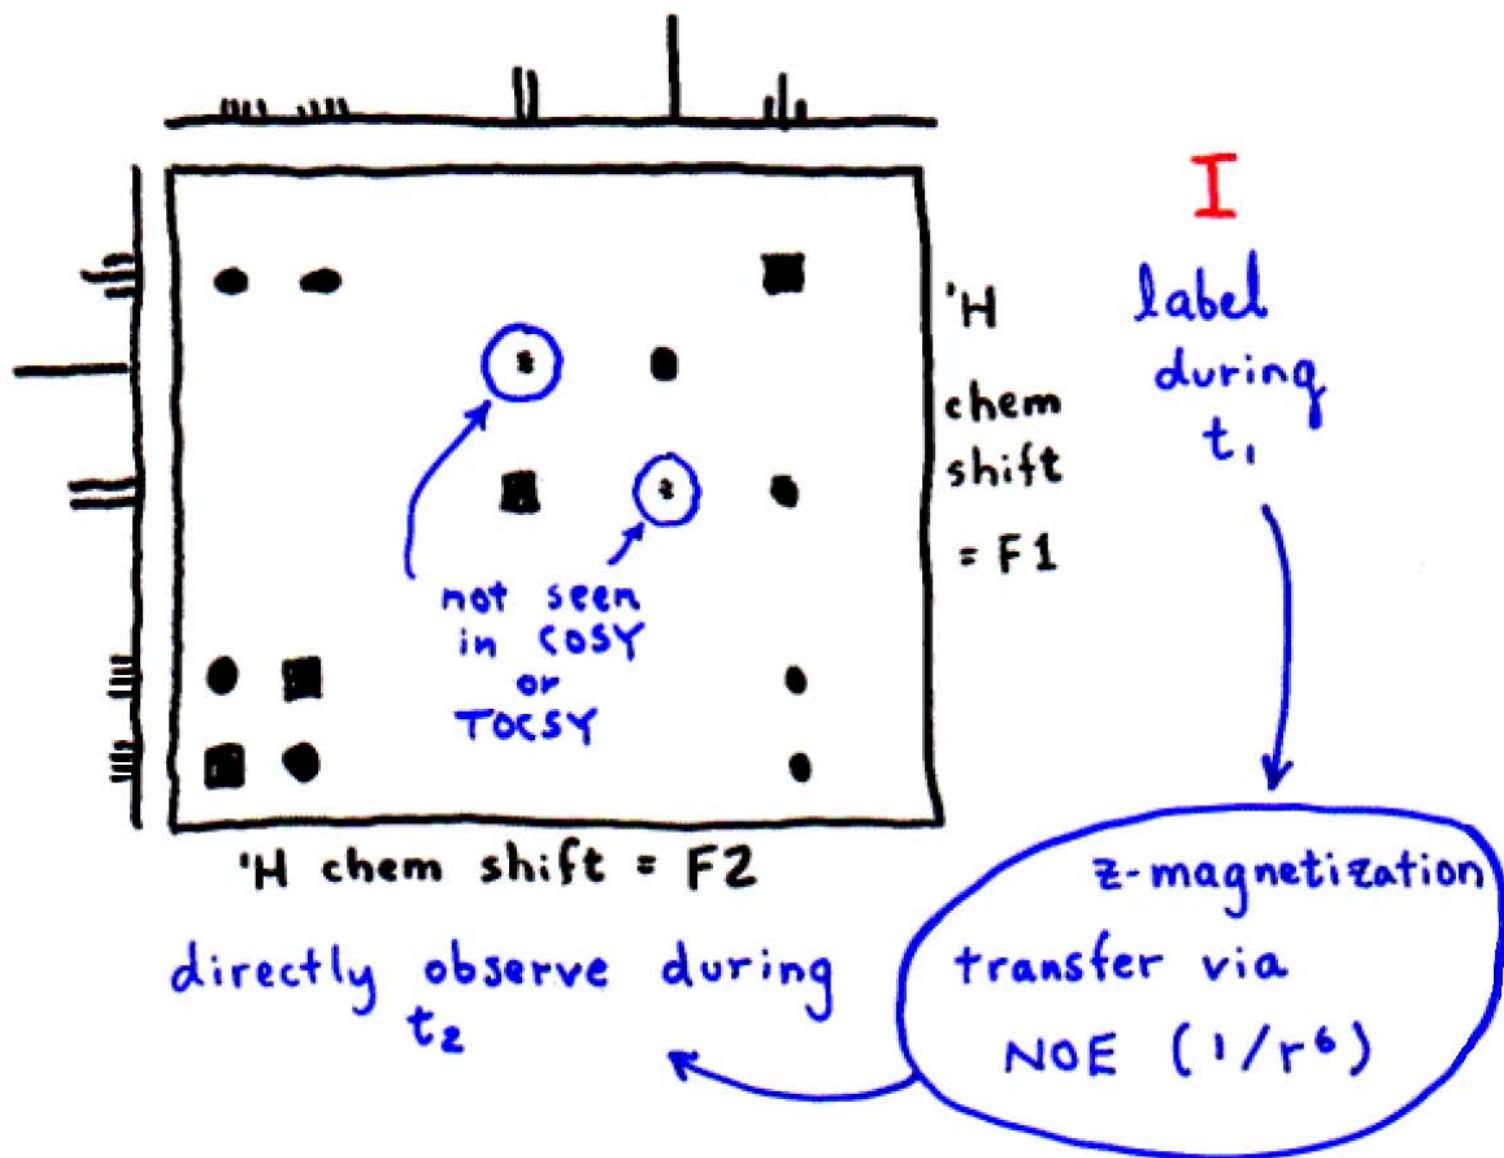 I
label
during
t₁
'H
chem
shift
= F1
not seen
in COSY
or
TOCSY
'H chem shift = F2
directly observe during
t₂
z-magnetization
transfer via
NOE (1/r⁶)